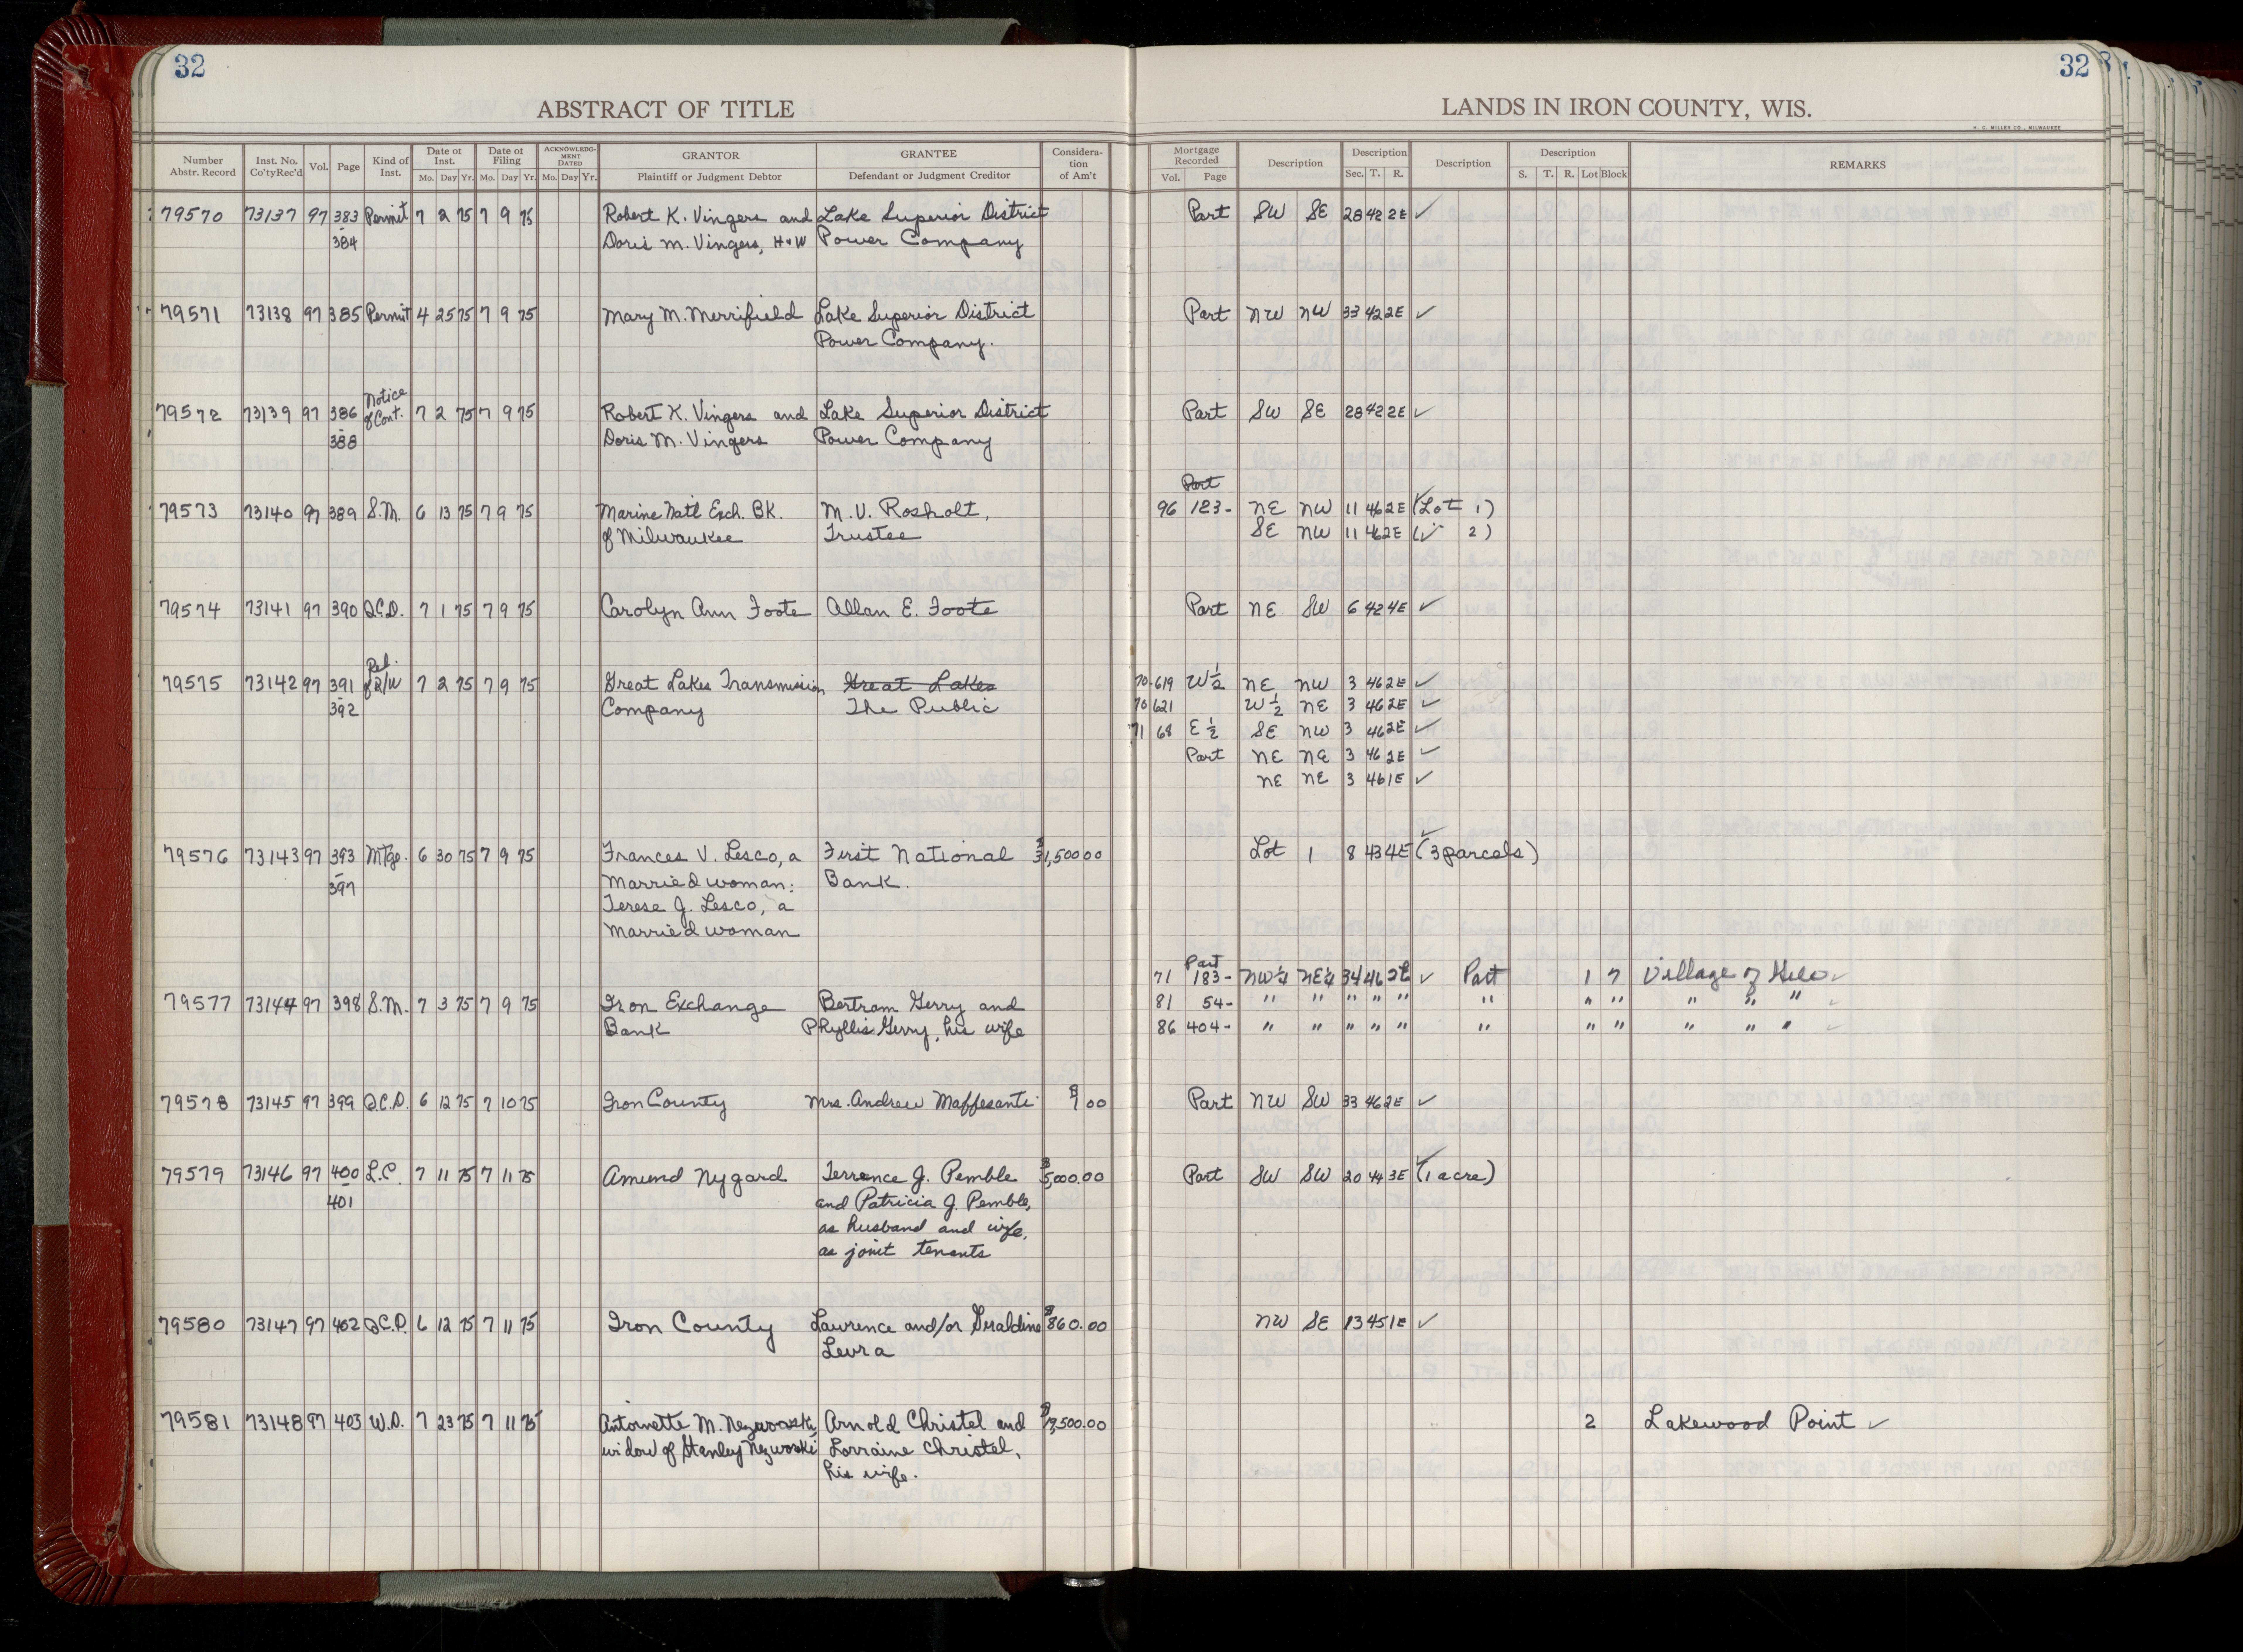 32 32
ABSTRACT OF TITLE LANDS IN IRON COUNTY, WIS.
H. C. MILLER CO., MILWAUKEE
Number Abstr. Record Inst. No. Co'tyRec'd Vol. Page Kind of Inst. Date of Inst. Mo. Day Yr. Date of Filing Mo. Day Yr. ACKNOWLEDGMENT DATED Mo. Day Yr. GRANTOR Plaintiff or Judgment Debtor GRANTEE Defendant or Judgment Creditor Consideration of Am't Mortgage Recorded Vol. Page Description Description Sec. T. R. Description Description S. T. R. Lot Block REMARKS
79570 73137 97 383 Permit 7 2 75 7 9 75 Robert K. Vingers and Lake Superior District Part SW SE 28 42 2E ✓
- 384 Doris M. Vingers, H & W Power Company
79571 73138 97 385 Permit 4 25 75 7 9 75 Mary M. Merrifield Lake Superior District Part NW NW 33 42 2E ✓
Power Company.
Notice
79572 73139 97 386 of Cont. 7 2 75 7 9 75 Robert K. Vingers and Lake Superior District Part SW SE 28 42 2E ✓
- 388 Doris M. Vingers Power Company
Part
79573 73140 97 389 S.M. 6 13 75 7 9 75 Marine Nat'l Exch. BK. M.V. Rosholt, 96 123- NE NW 11 46 2E ✓ (Lot 1)
of Milwaukee Trustee SE NW 11 46 2E ✓ (" 2)
79574 73141 97 390 Q.C.D. 7 1 75 7 9 75 Carolyn Ann Foote Allan E. Foote Part NE SW 6 42 4E ✓
Rel.
79575 73142 97 391 of R/W 7 2 75 7 9 75 Great Lakes Transmission Great Lakes 70-619 W½ NE NW 3 46 2E ✓
- 392 Company The Public 70 621 W½ NE 3 46 2E ✓
71 68 E½ SE NW 3 46 2E ✓
Part NE NE 3 46 2E ✓
NE NE 3 46 1E ✓
79576 73143 97 393 Mtge. 6 30 75 7 9 75 Frances V. Lesco, a First National $31,500 00 Lot 1 8 43 4E ✓ (3 parcels)
- 397 Married woman; Bank.
Terese J. Lesco, a
Married woman
Part
71 183- NW¼ NE¼ 34 46 2E ✓ Part 1 7 Village of ✓
79577 73144 97 398 S.M. 7 3 75 7 9 75 Iron Exchange Bertram Gerry and 81 54- " " " " " " " " " " " ✓
Bank Phyllis Gerry, his wife 86 404- " " " " " " " " " " " ✓
79578 73145 97 399 Q.C.D. 6 12 75 7 10 75 Iron County Mrs. Andrew Maffesanti $1 00 Part NW SW 33 46 2E ✓
79579 73146 97 400 L.C. 7 11 75 7 11 75 Amund Nygard Terrence J. Pemble $5,000.00 Part SW SW 20 44 3E ✓ (1 acre)
- 401 and Patricia J. Pemble,
as husband and wife,
as joint tenants
79580 73147 97 402 Q.C.D. 6 12 75 7 11 75 Iron County Lawrence and/or Geraldine $860.00 NW SE 13 45 1E ✓
Leura
79581 73148 97 403 W.D. 7 23 75 7 11 75 Antoinette M. Nezworski, Arnold Christel and ,500.00 2 Lakewood Point ✓
widow of Stanley Nezworski Lorraine Christel,
his wife.